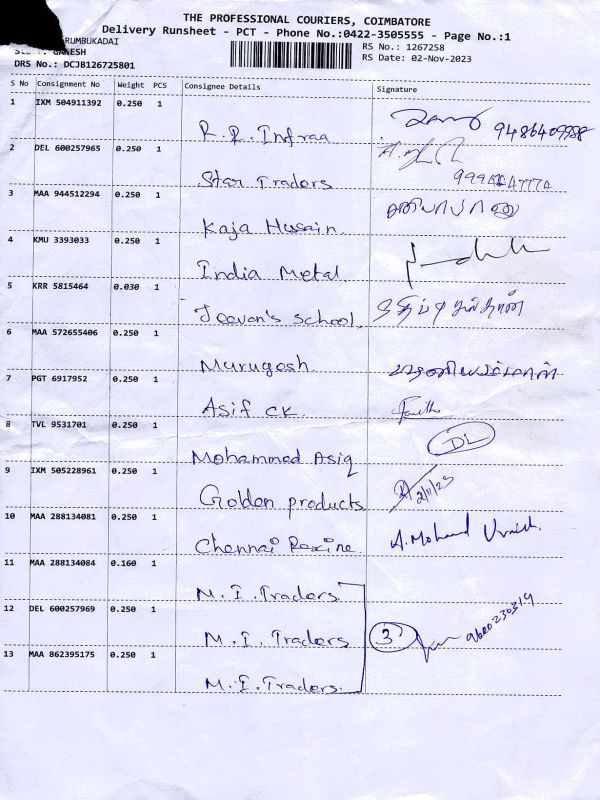 THE PROFESSIONAL COURIERS, COIMBATORE
Delivery Runsheet - PCT - Phone No.:0422-3505555 - Page No.:1
RUMBUKADAI
RS No.: 1267258
GANESH
RS Date: 02-Nov-2023
DRS No.: DCJB126725801
S No Consignment No Weight PCS Consignee Details Signature
1 IXM 504911392 0.250 1 R.R. Infraa
2 DEL 600257965 0.250 1 Star Traders
3 MAA 944512294 0.250 1 Kaja Husain
4 KMU 3393033 0.250 1 India Metal
5 KRR 5815464 0.030 1 Jeevan's school
6 MAA 572655406 0.250 1 Murugesh
7 PGT 6917952 0.250 1 Asif CK
8 TVL 9531701 0.250 1 Mohammed Asiq DL
9 IXM 505228961 0.250 1 Golden products 2/11/23
10 MAA 288134081 0.250 1 Chennai Rexine A. Mohamed
11 MAA 288134084 0.160 1 M. I. Traders
12 DEL 600257969 0.250 1 M. I. Traders 3
13 MAA 862395175 0.250 1 M. I. Traders